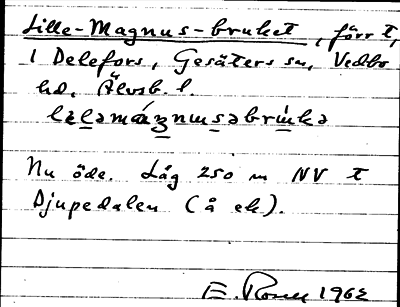 Lille-Magnus-bruket, förr t.
1 Delefors, Gesäters sn, Vedbo
hd, Älvsb. l.

Nu öde. Låg 250 m NV t
Djupedalen (å ek).
E. Rosell 1962